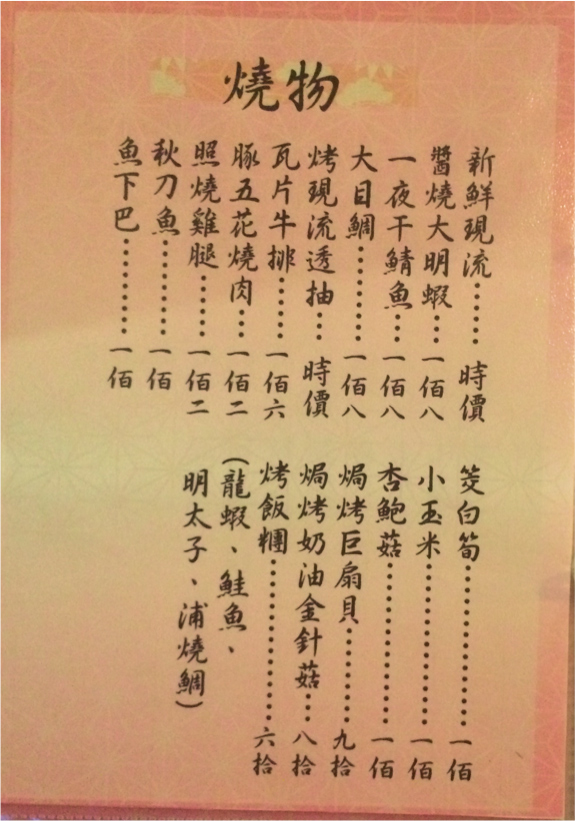 燒物
新鮮現流……時價
醬燒大明蝦…一佰八
一夜干鯖魚…一佰八
大目鯛…………一佰八
烤現流透抽…時價
瓦片牛排……一佰六
豚五花燒肉…一佰二
照燒雞腿……一佰二
秋刀魚…………一佰
魚下巴…………一佰
茭白筍……………………一佰
小玉米……………………一佰
杏鮑菇……………………一佰
焗烤巨扇貝……………九拾
焗烤奶油金針菇…八拾
烤飯糰……………………六拾
(龍蝦、鮭魚、
明太子、浦燒鯛)